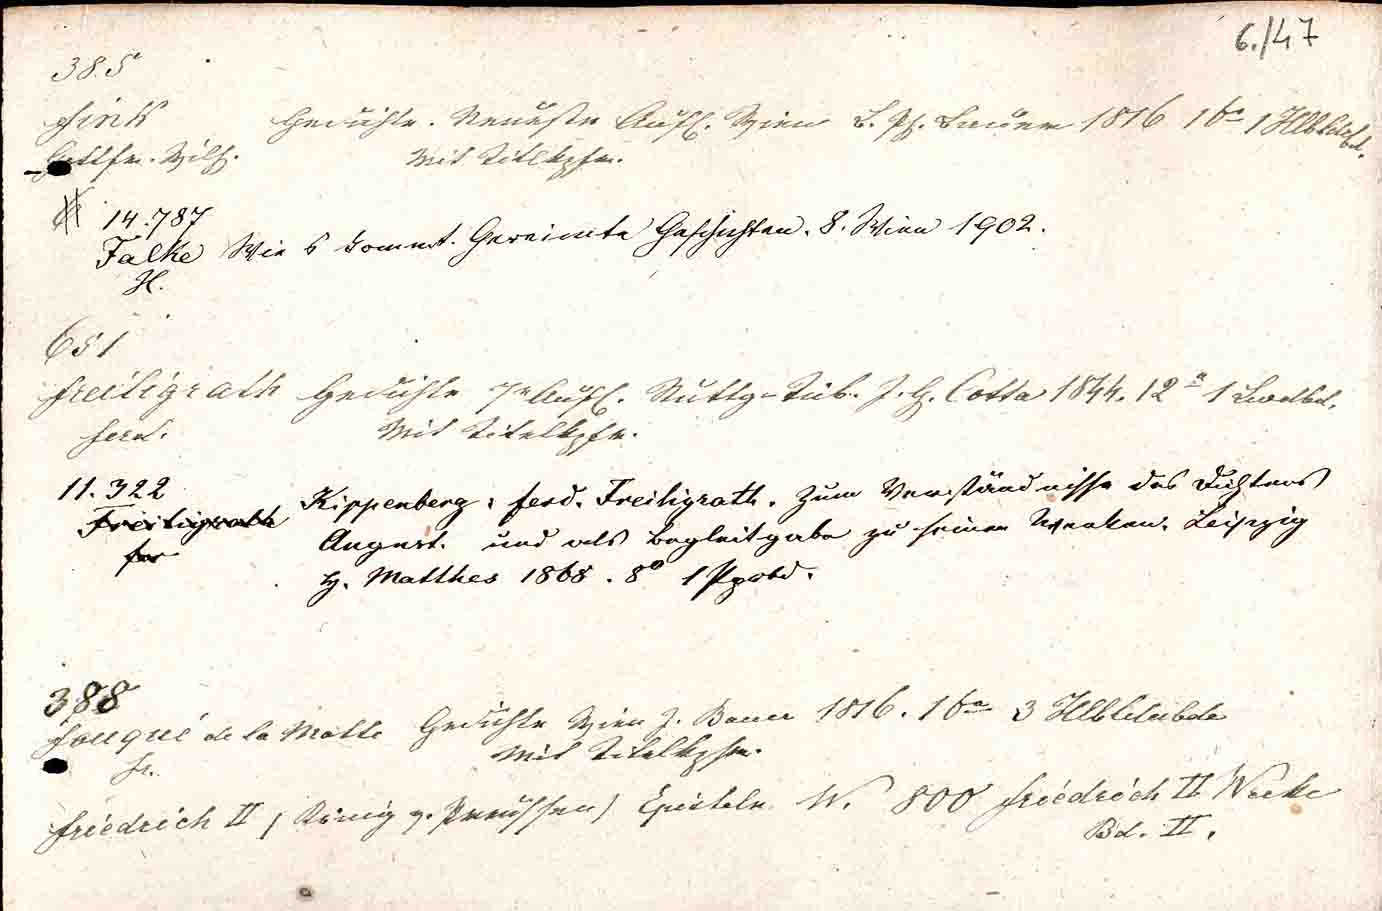 6./47
385
Fink Gedichte. Neueste Aufl. Wien B. Ph. Bauer 1816 16° 1 Hlbldrbd.
Gottfr. Wilh. Mit Titelkpfr.
14.787
Falke Wie's kommt. Gereimte Geschichten. 8. Wien 1902.
H.
651
Freiligrath Gedichte 7e Aufl. Stuttg-Tüb. J. G. Cotta 1844. 12° 1 Lwdbd.
Ferd. Mit Titelkpfr.
11.322
Freiligrath Kippenberg: Ferd. Freiligrath. Zum Verständnisse des Dichters
Fer August. und als Begleitgabe zu seinen Werken. Leipzig
H. Matthes 1868. 8° 1 Ppbd.
388
Fouqué de la Motte Gedichte Wien J. Bauer 1816. 16° 3 Hlbldrbde
Fr. Mit Titelkpfr.
Friedrich II (König v. Preußen) Episteln N. 800 Friedrich II Werke
Bd. II.